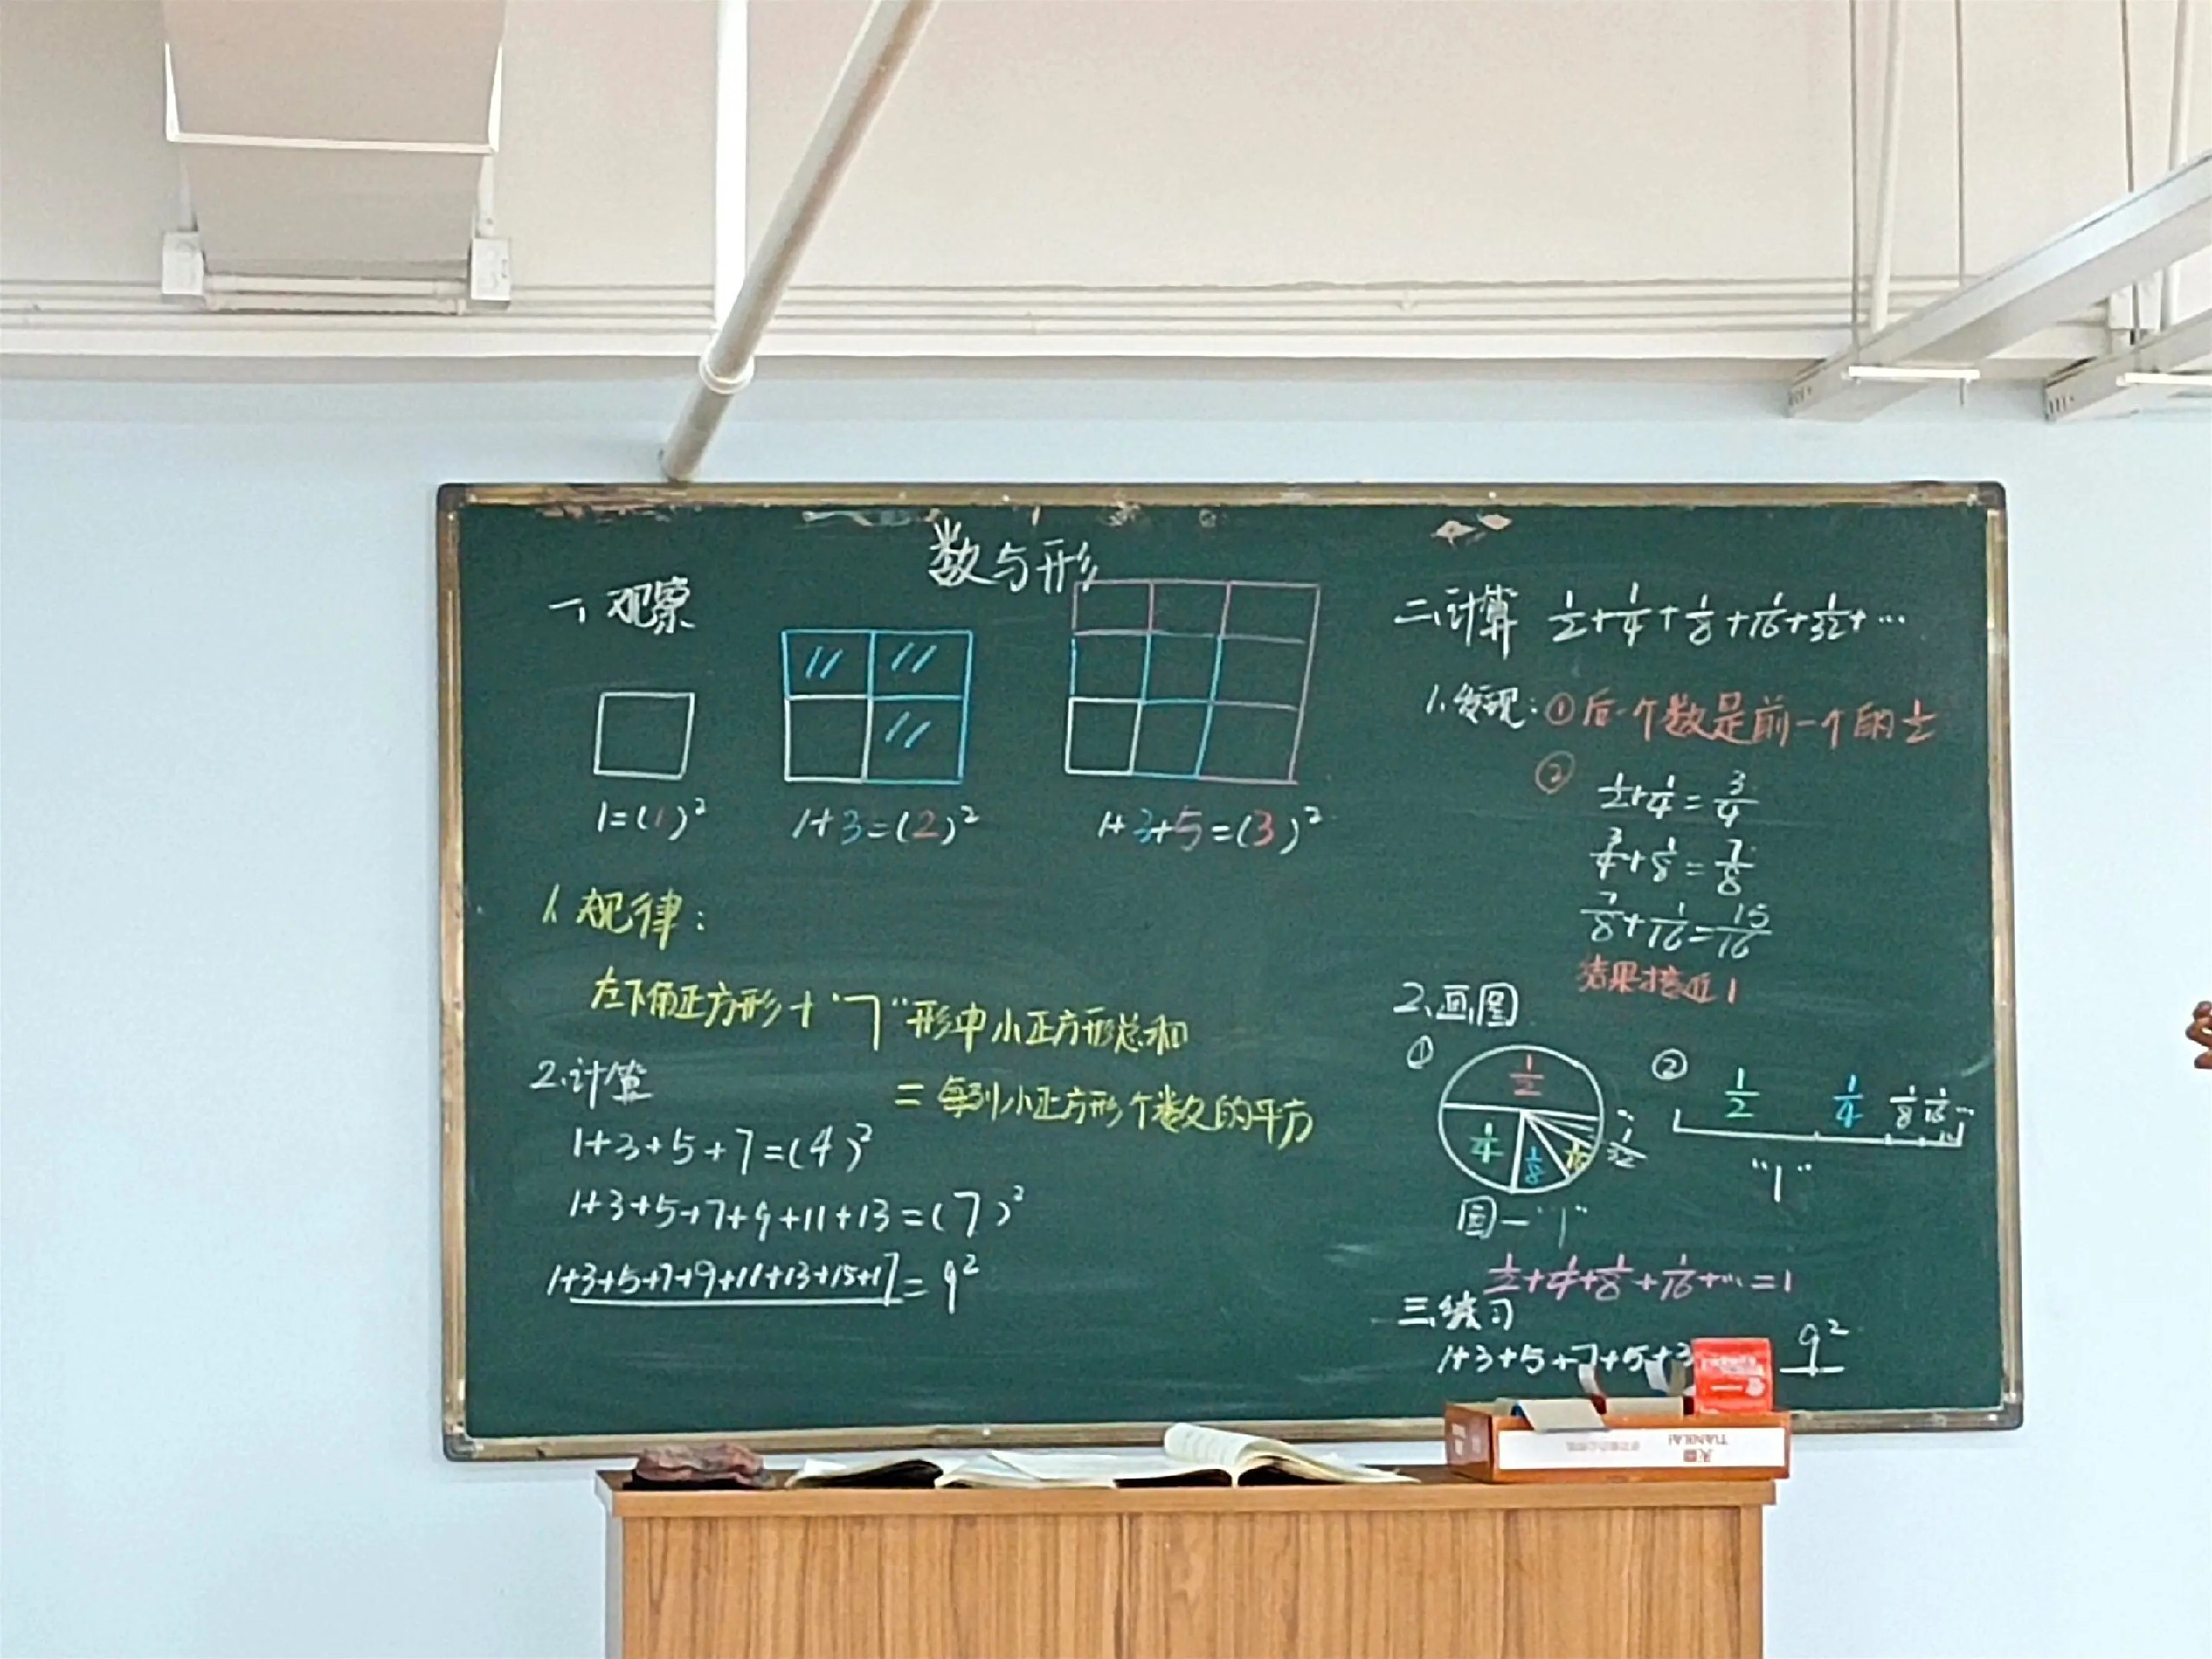 数与形
一、观察
1=(1)²
1+3=(2)²
1+3+5=(3)²
1.规律:
左下角正方形+"㇆"形中小正方形总和
=每列小正方形个数的平方
2.计算
1+3+5+7=(4)²
1+3+5+7+9+11+13=(7)²
1+3+5+7+9+11+13+15+17=9²
二、计算 1/2+1/4+1/8+1/16+1/32+…
1.发现:①后一个数是前一个的1/2
② 1/2+1/4=3/4
3/4+1/8=7/8
7/8+1/16=15/16
结果接近1
2.画图
① 1/2 1/4 1/8 1/16 1/32
圆—"1"
② 1/2 1/4 1/8 1/16 …
"1"
1/2+1/4+1/8+1/16+…=1
三、练习
1+3+5+7+5+3 9²
天章
TIANKAI